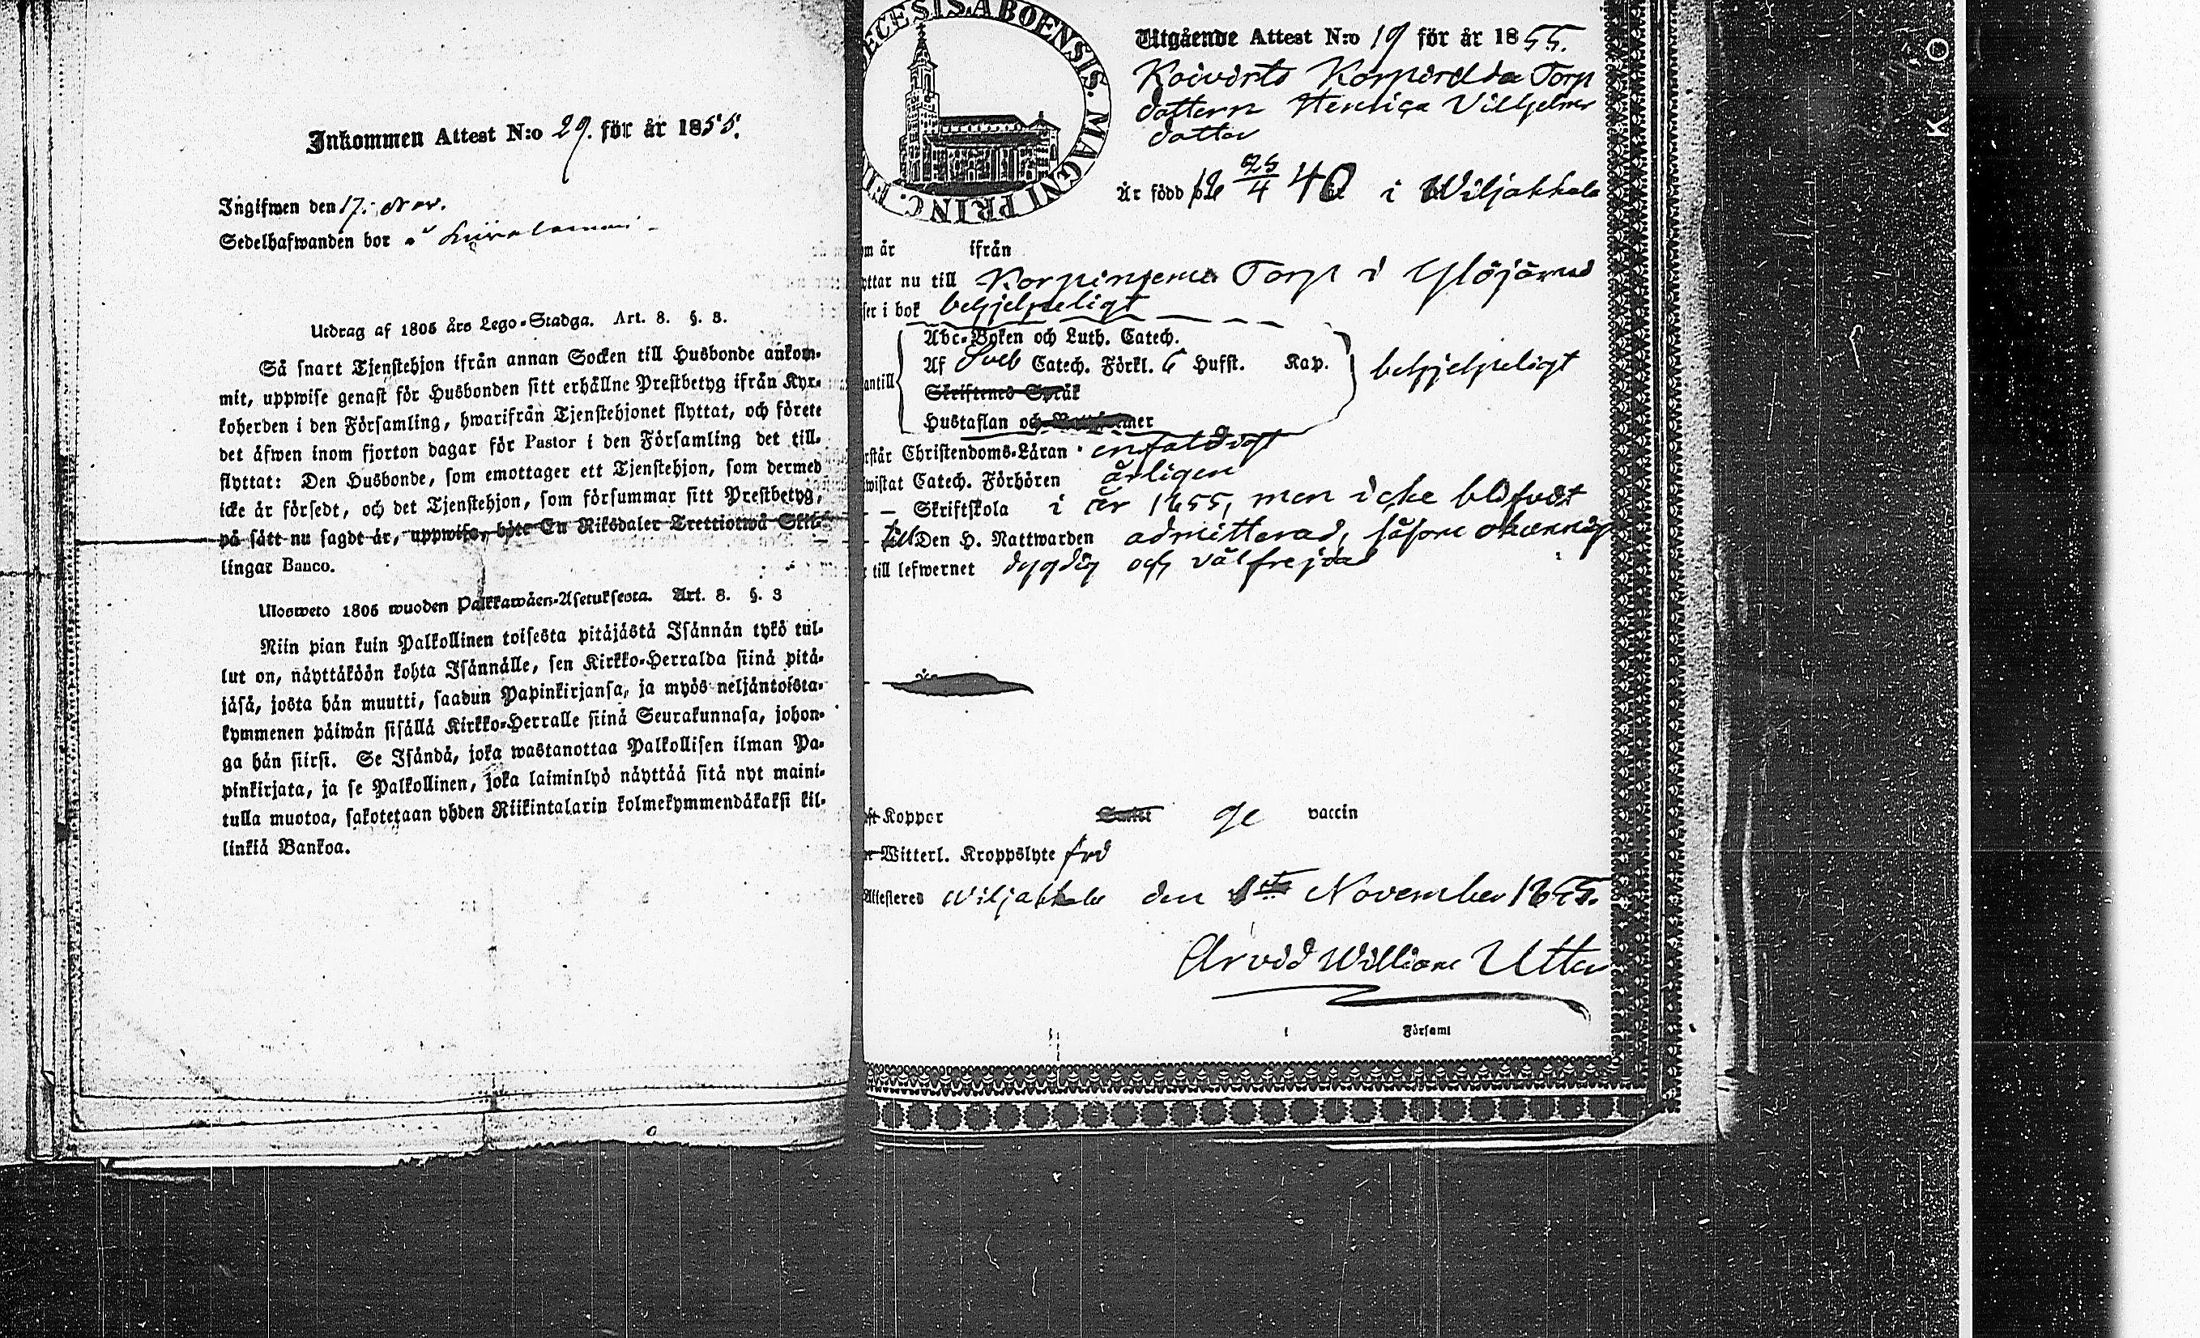 Inkommen Attest N:o 29. för år 1855.
Ingifwen den 17. Nov.
Sedelhafwanden bor
Utdrag af 1805 års Lego-Stadga. Art. 8. §. 3.
Så snart Tjenstehjon ifrån annan Socken till Husbonde ankom-
mit, uppwise genast för Husbonden sitt erhållne Prestbetyg ifrån Kyr-
koherden i den Församling, hwarifrån Tjenstehjonet flyttat, och förete
det äfwen inom fjorton dagar för Pastor i den Församling det till-
flyttat: Den Husbonde, som emottager ett Tjenstehjon, som dermed
icke är försedt, och det Tjenstehjon, som försummar sitt Prestbetyg,
på sätt nu sagdt är, uppwisa, böte En Riksdaler Trettiotwå Skil-
lingar Banco.
Ulosweto 1805 wuoden Palkkawäen-Asetuksesta. Art. 8. §. 3
Niin pian kuin Palkollinen toisesta pitäjästä Isännän tykö tul-
lut on, näyttäköön kohta Isännälle, sen Kirkko-Herralda siinä pitä-
jäsä, josta hän muutti, saadun Papinkirjansa, ja myös neljäntoista-
kymmenen päiwän sisällä Kirkko-Herralle siinä Seurakunnasa, johon-
ga hän siirsi. Se Isändä, joka wastanottaa Palkollisen ilman Pa-
pinkirjata, ja se Palkollinen, joka laiminlyö näyttää sitä nyt maini-
tulla muotoa, sakotetaan yhden Riikintalarin kolmekymmendäkaksi kil-
linkiä Bankoa.
ECESIS.ABOENSIS. MAGNI PRINC. FI
Utgående Attest N:o 19 för år 1855.
Koivisto Torp
dottern Henrica Vilhelms
dotter
Är född på 25/4 40 i Wiljakkala
m är ifrån
yttar nu till Torp i Ylöjärvi
ser i bok behjelpeligt
Abc-Boken och Luth. Catech.
antill Af Sveb Catech. Förkl. 6 Hufst. Kap. behjelpeligt
Skriftenes Språk
Hustaflan och
rstår Christendoms-Läran enfaldigt
wistat Catech. Förhören årligen
– Skriftskola i år 1855, men icke blifvit
till Den H. Nattwarden admitterad, såsom okunnig
till lefwernet dygdig och välfrejdad
Koppor vaccin
Witterl. Kroppslyte fri
Attesteras Wiljakkala den November 1855.
Arvid William Utter
Församl
K O